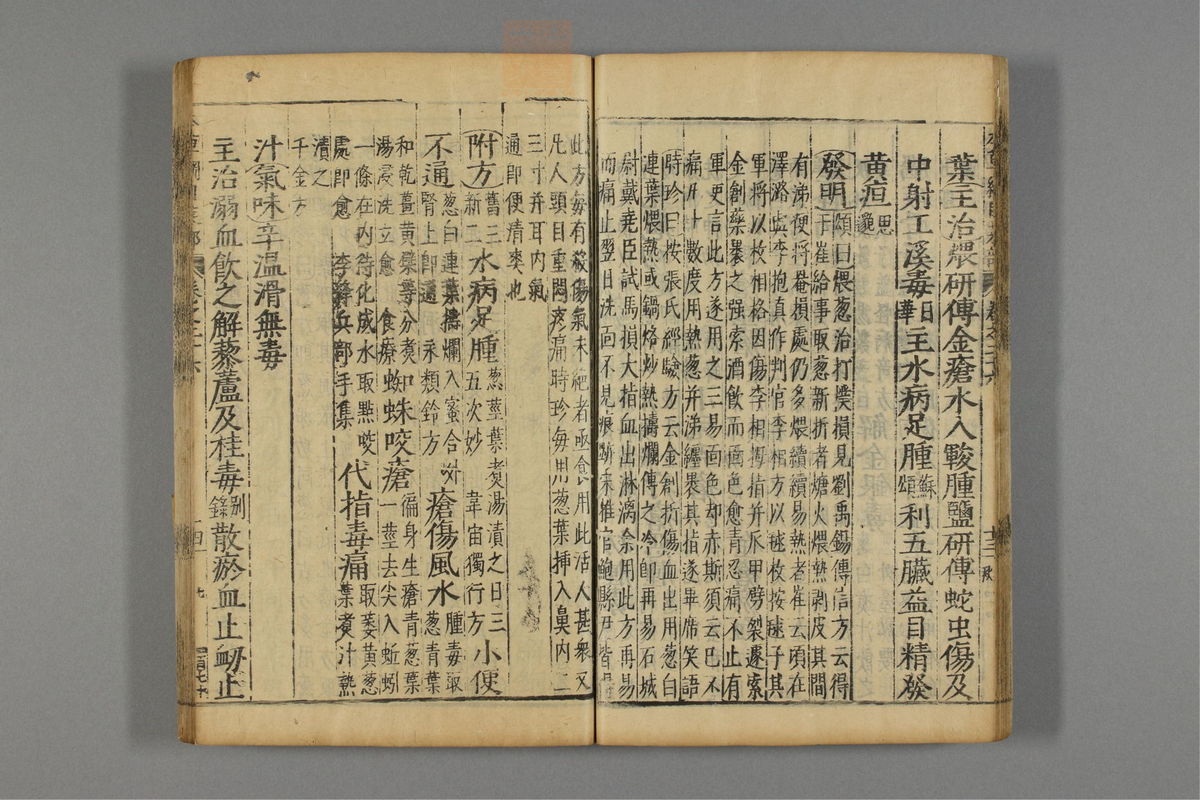 葉主治煨研傅金瘡水入皸腫鹽研傅蛇虫傷及
中射工溪毒日華主水病足腫蘇頌利五臟益目精發
黃疸思邈
發明頌曰煨葱治打撲損見劉禹錫傳信方云得
于崔給事取葱新折者煻火煨熱剥皮其間
有涕便將罨損處仍多煨續續易熱者崔云頃在
澤潞與李抱真作判官李相方以毬杖按毬子其
軍將以杖相格因傷李相拇指并爪甲劈裂遽索
金創藥裹之强索酒飲而面色愈青忍痛不止有
軍吏言此方遂用之三易面色却赤斯須云已不
痛凡十數度用熱葱并涕纏裹其指遂畢席笑語
時珍曰按張氏經驗方云金創折傷血出用葱白
連葉煨熱或鍋烙炒熱擣爛傅之冷即再易石城
尉戴堯臣試馬損大指血出淋漓余用此方再易
而痛止翌日洗面不見痕跡宋推官鮑縣尹皆得
此方每有殺傷氣未絕者亟食用此活人甚衆又
凡人頭目重悶疼痛時珍每用葱葉挿入鼻内二
三寸并耳内氣
通即便清爽也
附方舊三新二水病足腫葱莖葉煑湯漬之日三五次妙韋宙獨行方小便
不通葱白連葉擣爛入蜜合外腎上即通永類鈴方瘡傷風水腫毒取葱青葉
和乾薑黃蘗等分煑湯浸洗立愈食療蜘蛛咬瘡徧身生瘡青葱葉
一莖去尖入蚯蚓一條在内待化成水取點咬
處即愈李絳兵部手集代指毒痛取萎黃葱葉煑汁熱
漬之
千金方
汁氣味辛温滑無毒
主治溺血飲之解藜蘆及桂毒别錄散瘀血止衂止